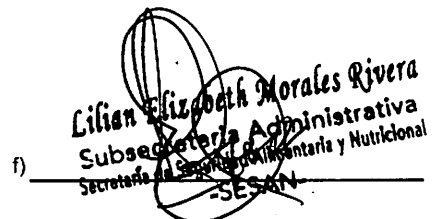 Lilian Elizabeth Morales Rivera
Subsecretaria Administrativa
Secretaría de Seguridad Alimentaria y Nutricional
-SESAN-
f)